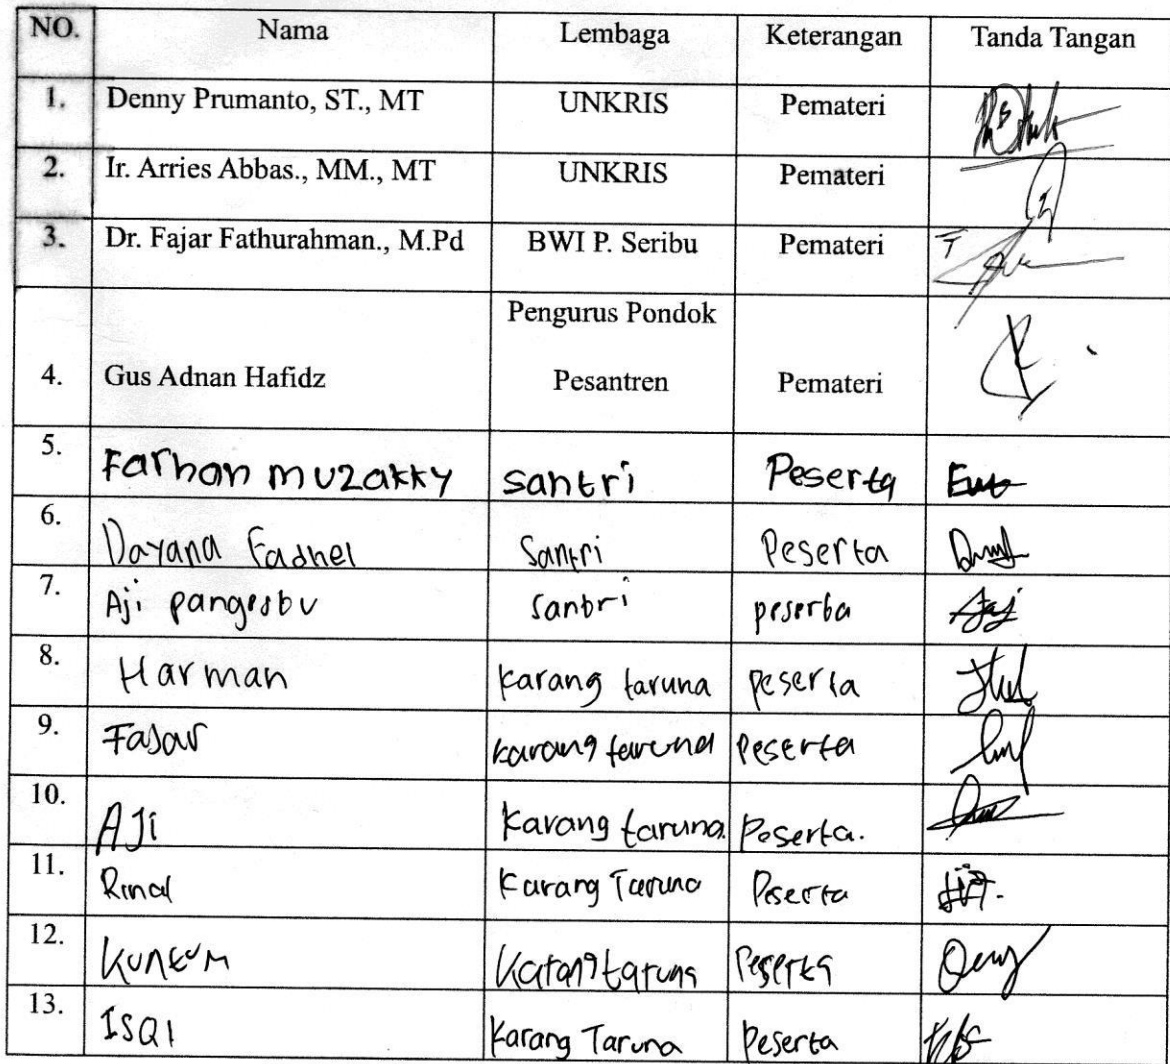 NO. Nama Lembaga Keterangan Tanda Tangan
1. Denny Prumanto, ST., MT UNKRIS Pemateri
2. Ir. Arries Abbas., MM., MT UNKRIS Pemateri
3. Dr. Fajar Fathurahman., M.Pd BWI P. Seribu Pemateri
Pengurus Pondok
4. Gus Adnan Hafidz Pesantren Pemateri
5. Farhan muzakky santri Peserta
6. Dayana Fadhel Santri Peserta
7. Aji pangestu santri peserta
8. Harman karang taruna peserta
9. Fajar karang taruna Peserta
10. AJi Karang taruna. Peserta.
11. Rinal Karang Taruna Peserta
12. Kuntum Karang taruna Peserta
13. ISQI Karang Taruna Peserta